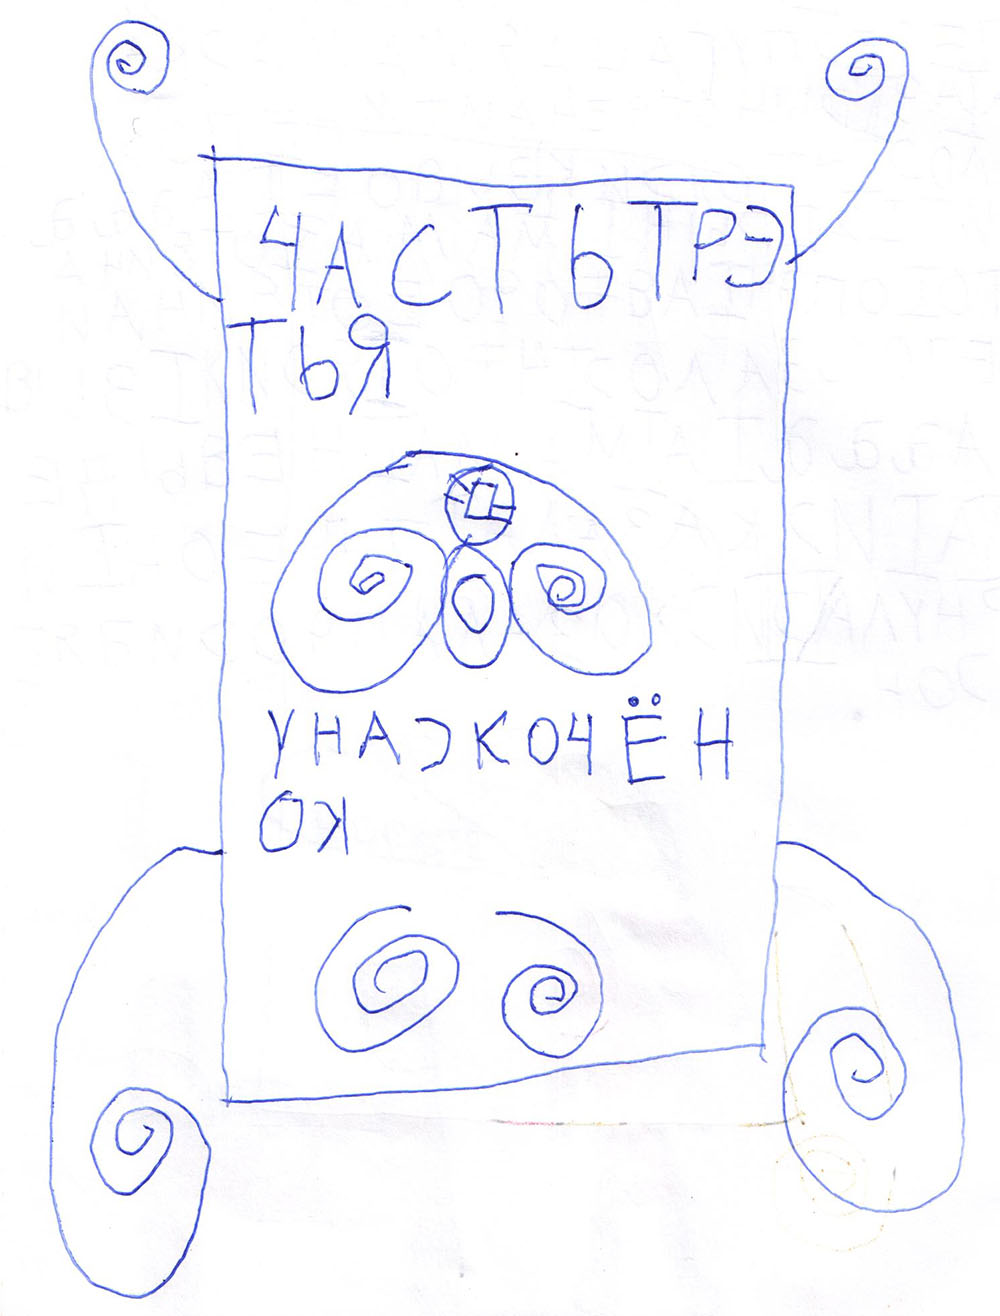 ЧАСТЬ ТРЭ
ТЬЯ
У НАС КОЧЁН
ОК